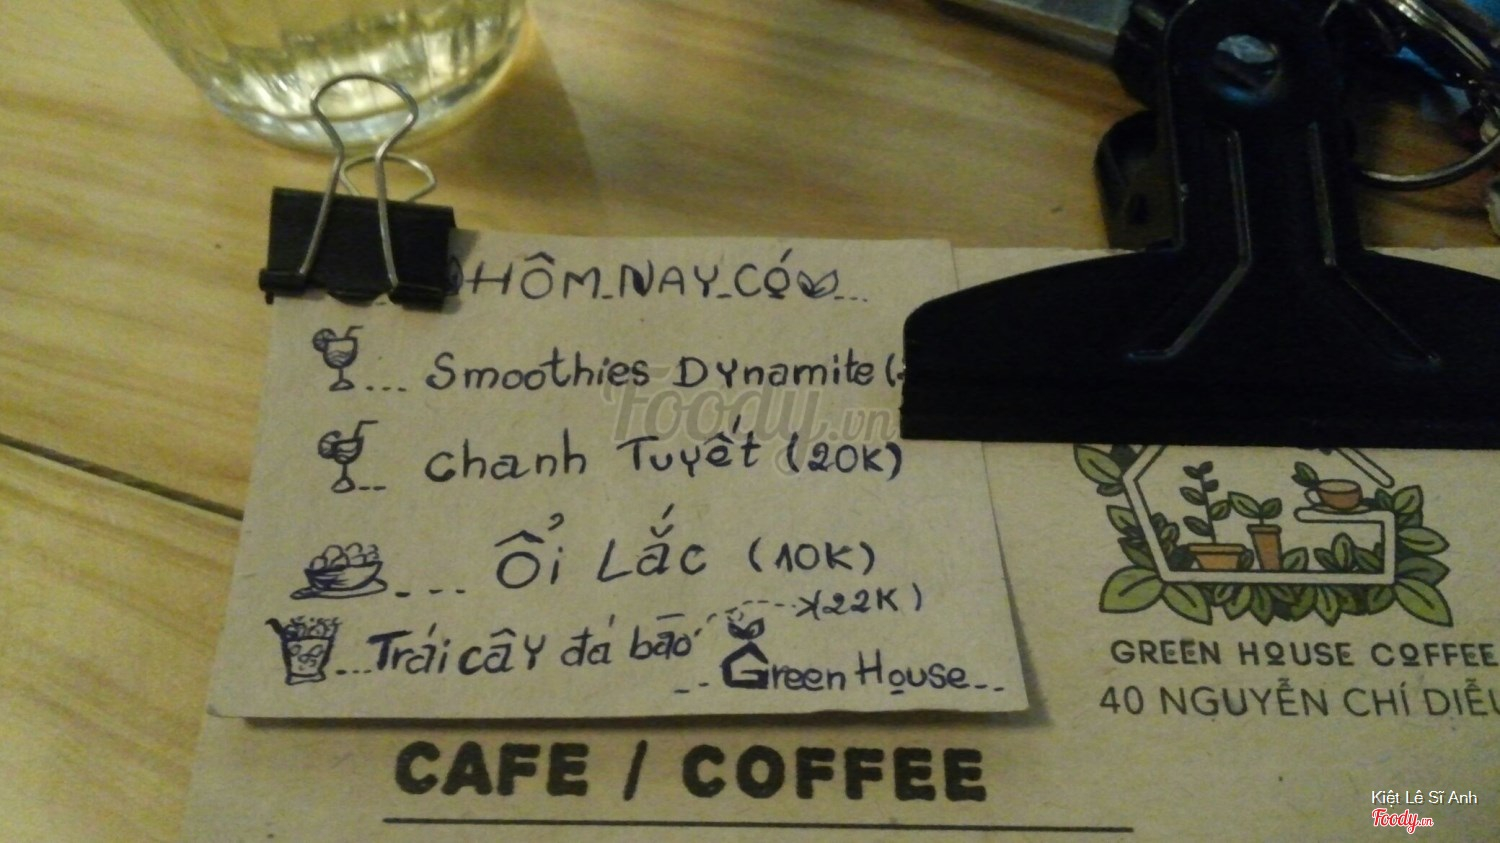 HÔM NAY CÓ
Smoothies Dynamite (
Foody.vn
Chanh Tuyết (20K)
Ổi Lắc (10K)
(22K)
Trái cây đá bào
Green House
GREEN HOUSE COFFEE
40 NGUYỄN CHÍ DIỂU
CAFE / COFFEE
Kiệt Lê Sĩ Anh
Foody.vn